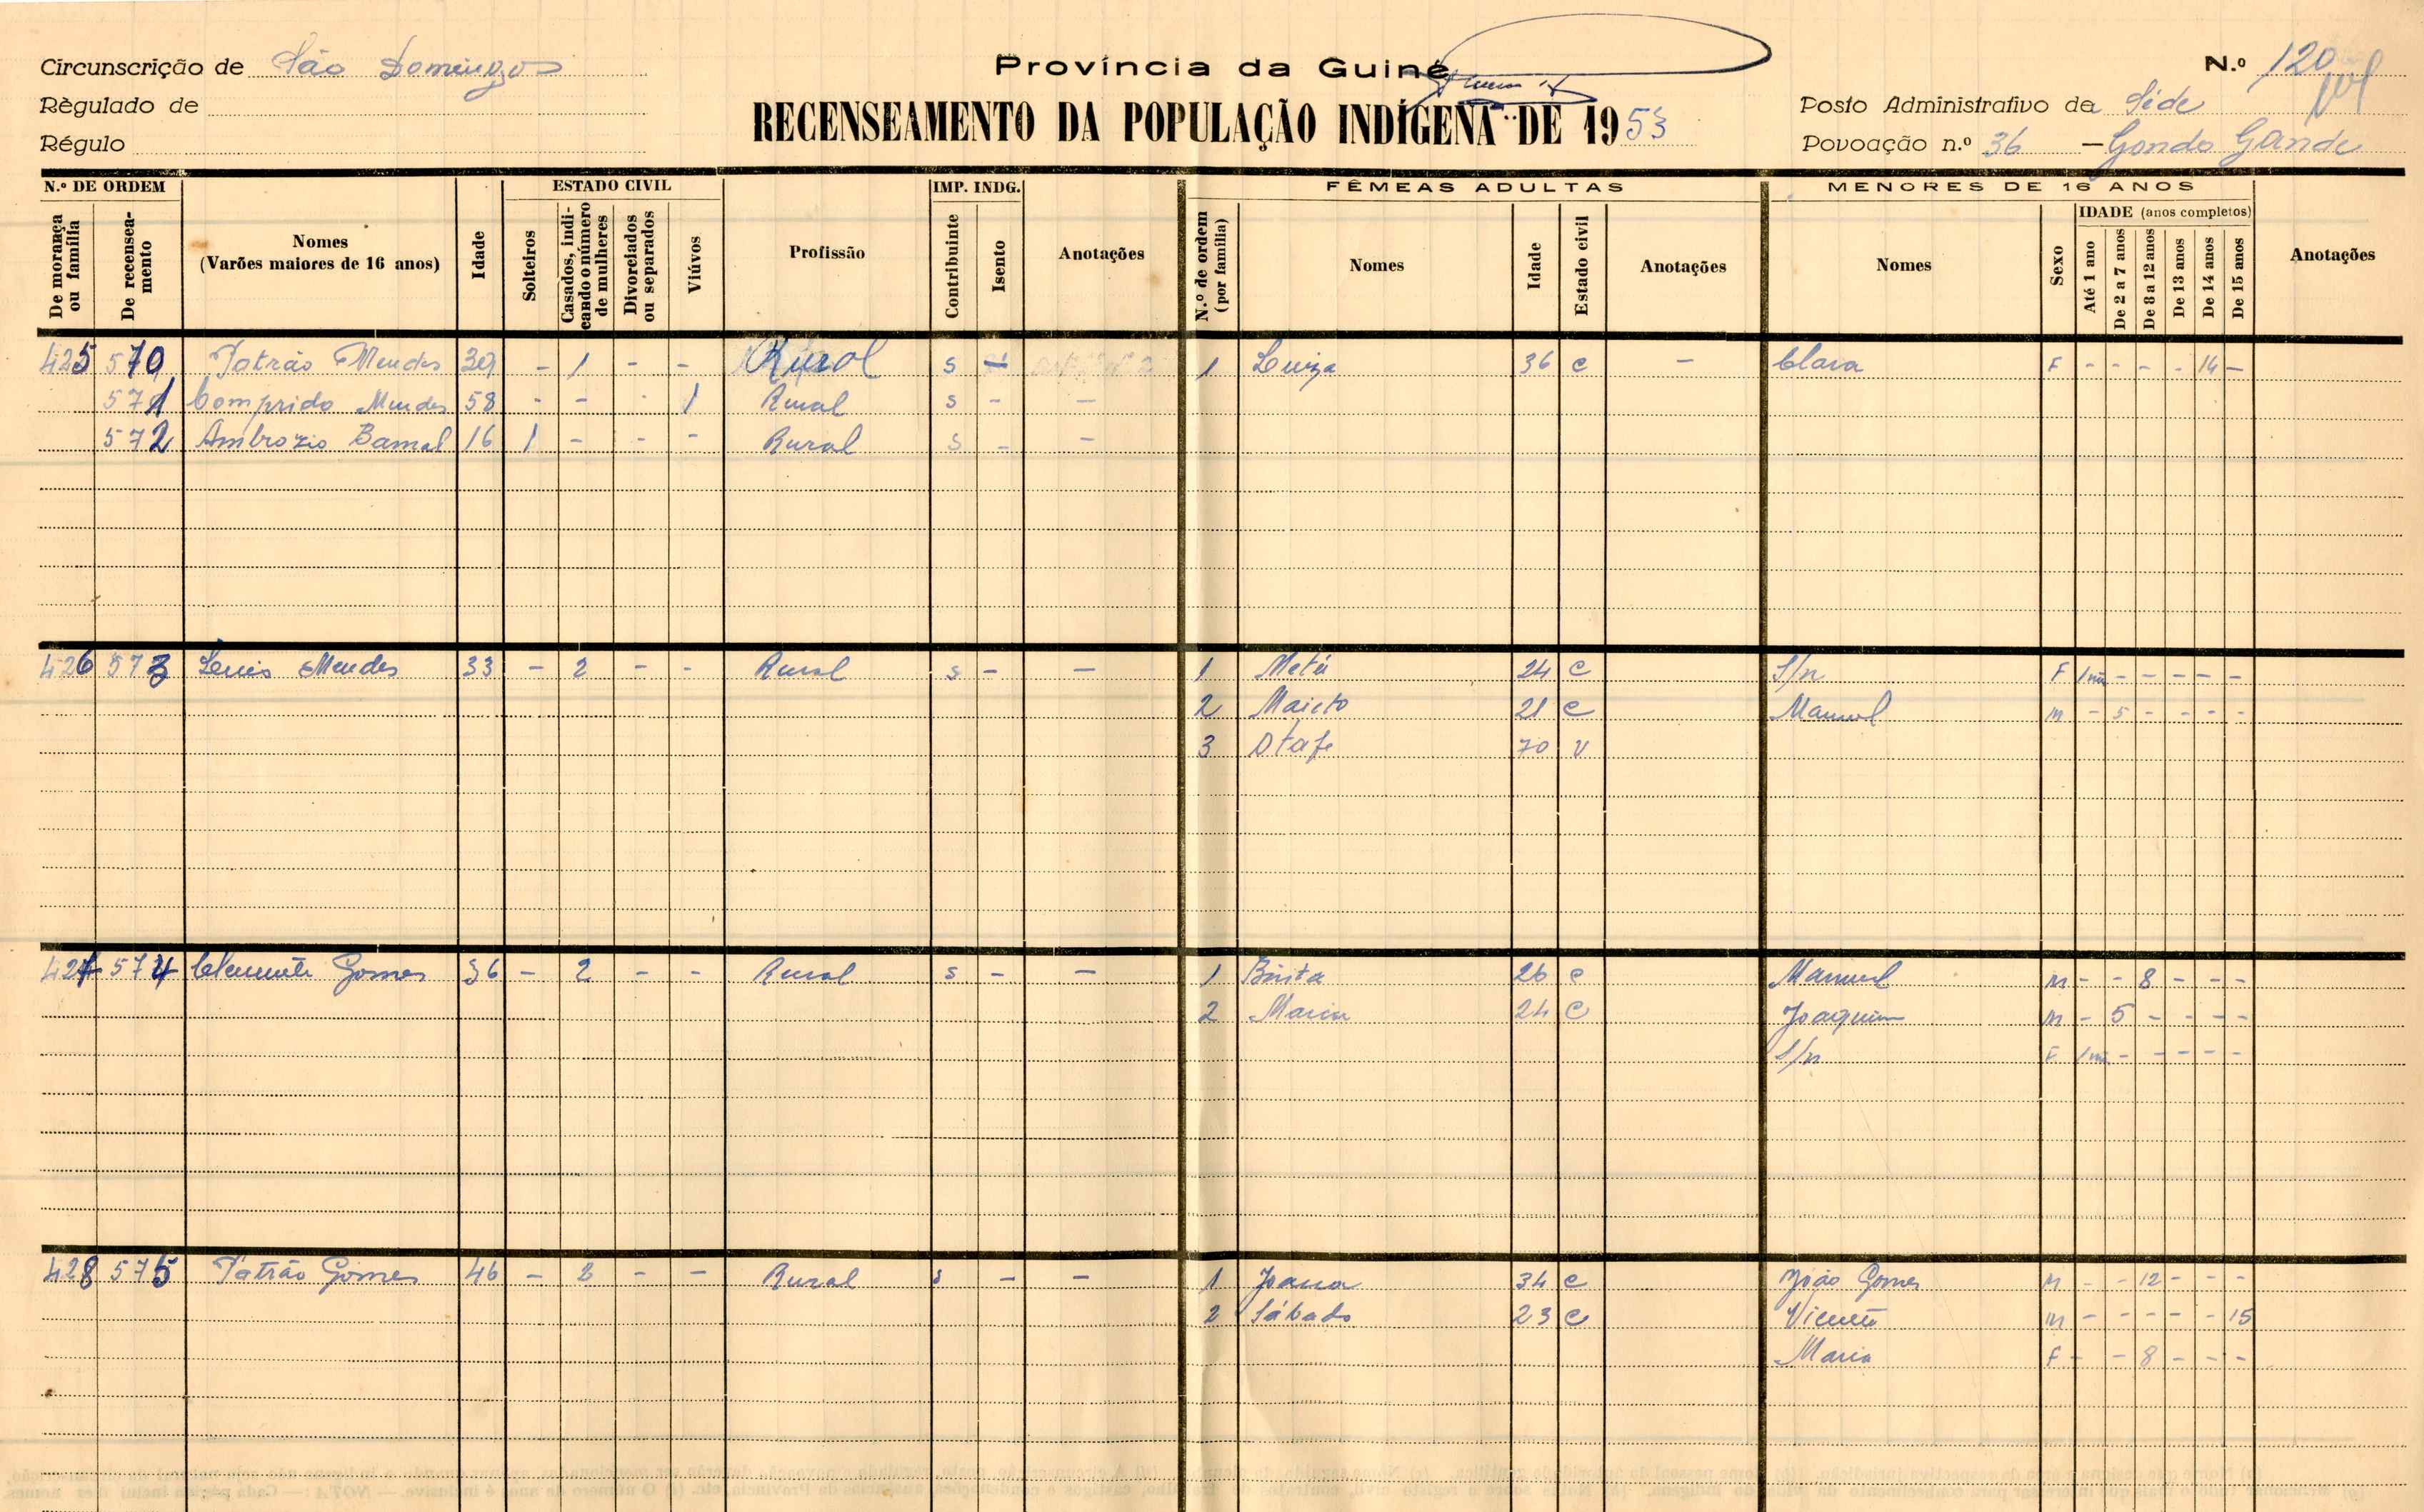 Circunscrição de São Domingos
Província da Guiné
N.º 120
Règulado de
RECENSEAMENTO DA POPULAÇÃO INDÍGENA DE 1953
Posto Administrativo de a Séde
Régulo
Povoação n.º 36 — Gondo Gande
N.º DE ORDEM
De morança ou família
De recenseamento
Nomes
(Varões maiores de 16 anos)
Idade
ESTADO CIVIL
Solteiros
Casados, indicando o número de mulheres
Divorciados ou separados
Viúvos
Profissão
IMP. INDG.
Contribuinte
Isento
Anotações
FÊMEAS ADULTAS
N.º de ordem (por família)
Nomes
Idade
Estado civil
Anotações
MENORES DE 16 ANOS
Nomes
Sexo
IDADE (anos completos)
Até 1 ano
De 2 a 7 anos
De 8 a 12 anos
De 13 anos
De 14 anos
De 15 anos
Anotações
425 570 Patrão Mendes 39 - 1 - - Rural s - 1 Luiza 36 C - Clara F - - - - 14 -
571 Comprido Mendes 58 - - - 1 Rural s - -
572 Ambrozio Bamal 16 1 - - - Rural s - -
426 573 Luis Mendes 33 - 2 - - Rural s - - 1 Metá 24 C S/n F - - - - -
2 Maieto 21 C Manuel M - 5 - - - -
3 Otafe 70 V
427 574 Clemente Gomes 36 - 2 - - Rural s - - 1 Binta 26 C Manuel M - - 8 - - -
2 Maria 24 C Joaquim M - 5 - - - -
S/n F - - - - -
428 575 Patrão Gomes 46 - 2 - - Rural s - - 1 Joana 34 C João Gomes M - - 12 - - -
2 Sábado 23 C Vicente M - - - - - 15
Maria F - - 8 - - -